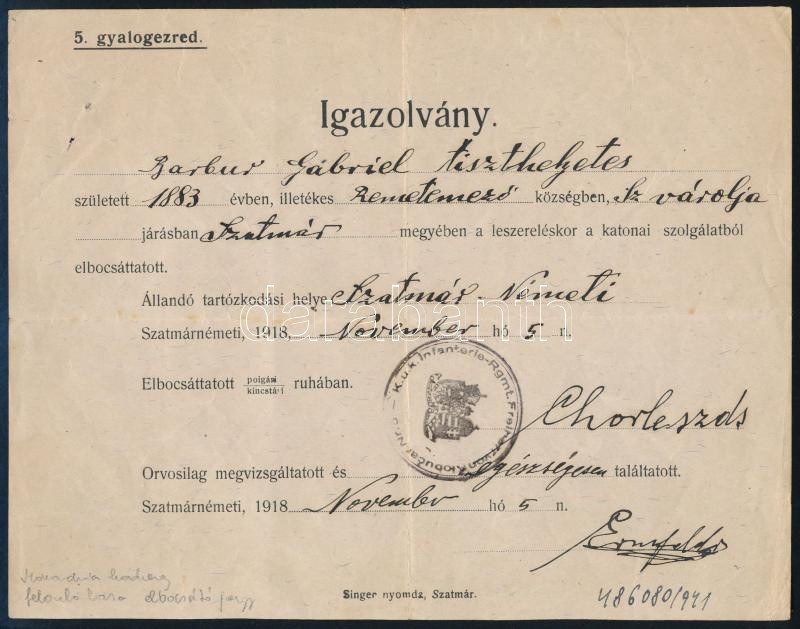 5. gyalogezred.
Igazolvány.
Barbur Gábriel tiszthelyetes
született 1883 évben, illetékes Remetemező községben, Sz váralja
járásban Szatmár megyében a leszereléskor a katonai szolgálatból
elbocsáttatott.
Állandó tartózkodási helye Szatmár-Németi
Szatmárnémeti, 1918, November hó 5 n.
darabanth
Elbocsáttatott polgári ruhában.
kincstári
K.u.k. Infanterie-Rgmt. Freiherr von Klobučar Nr. 5
Orvosilag megvizsgáltatott és egészségesen találtatott.
Szatmárnémeti, 1918 November hó 5 n.
elbocsátó
Singer nyomda, Szatmár.
486080/941